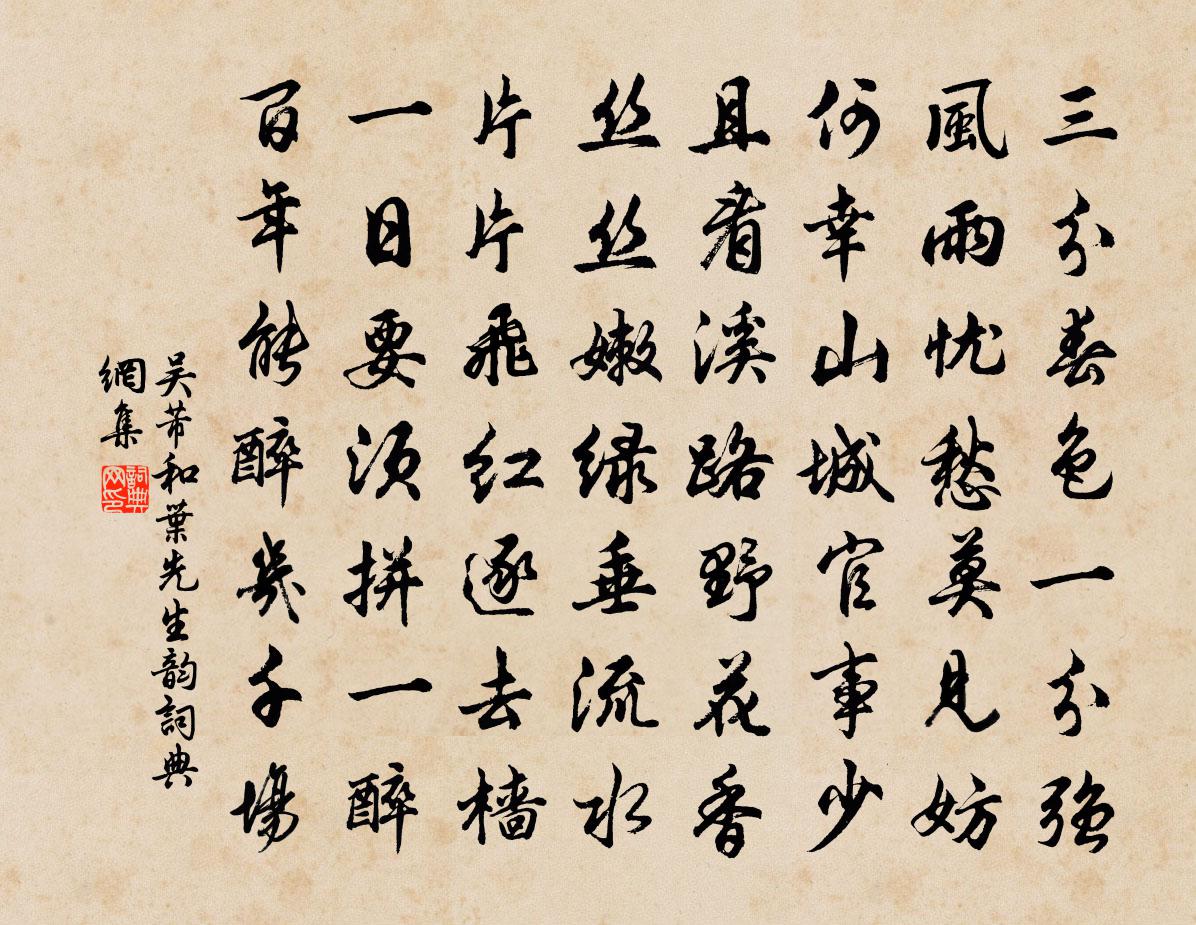 三分春色一分強
風雨忧愁莫見妨
何幸山城官事少
且看溪路野花香
丝丝嫩绿垂流水
片片飛红逐去樯
一日要须拼一醉
百年能醉幾千場
吴芾和葉先生韵詞典
網集
詞典
网印